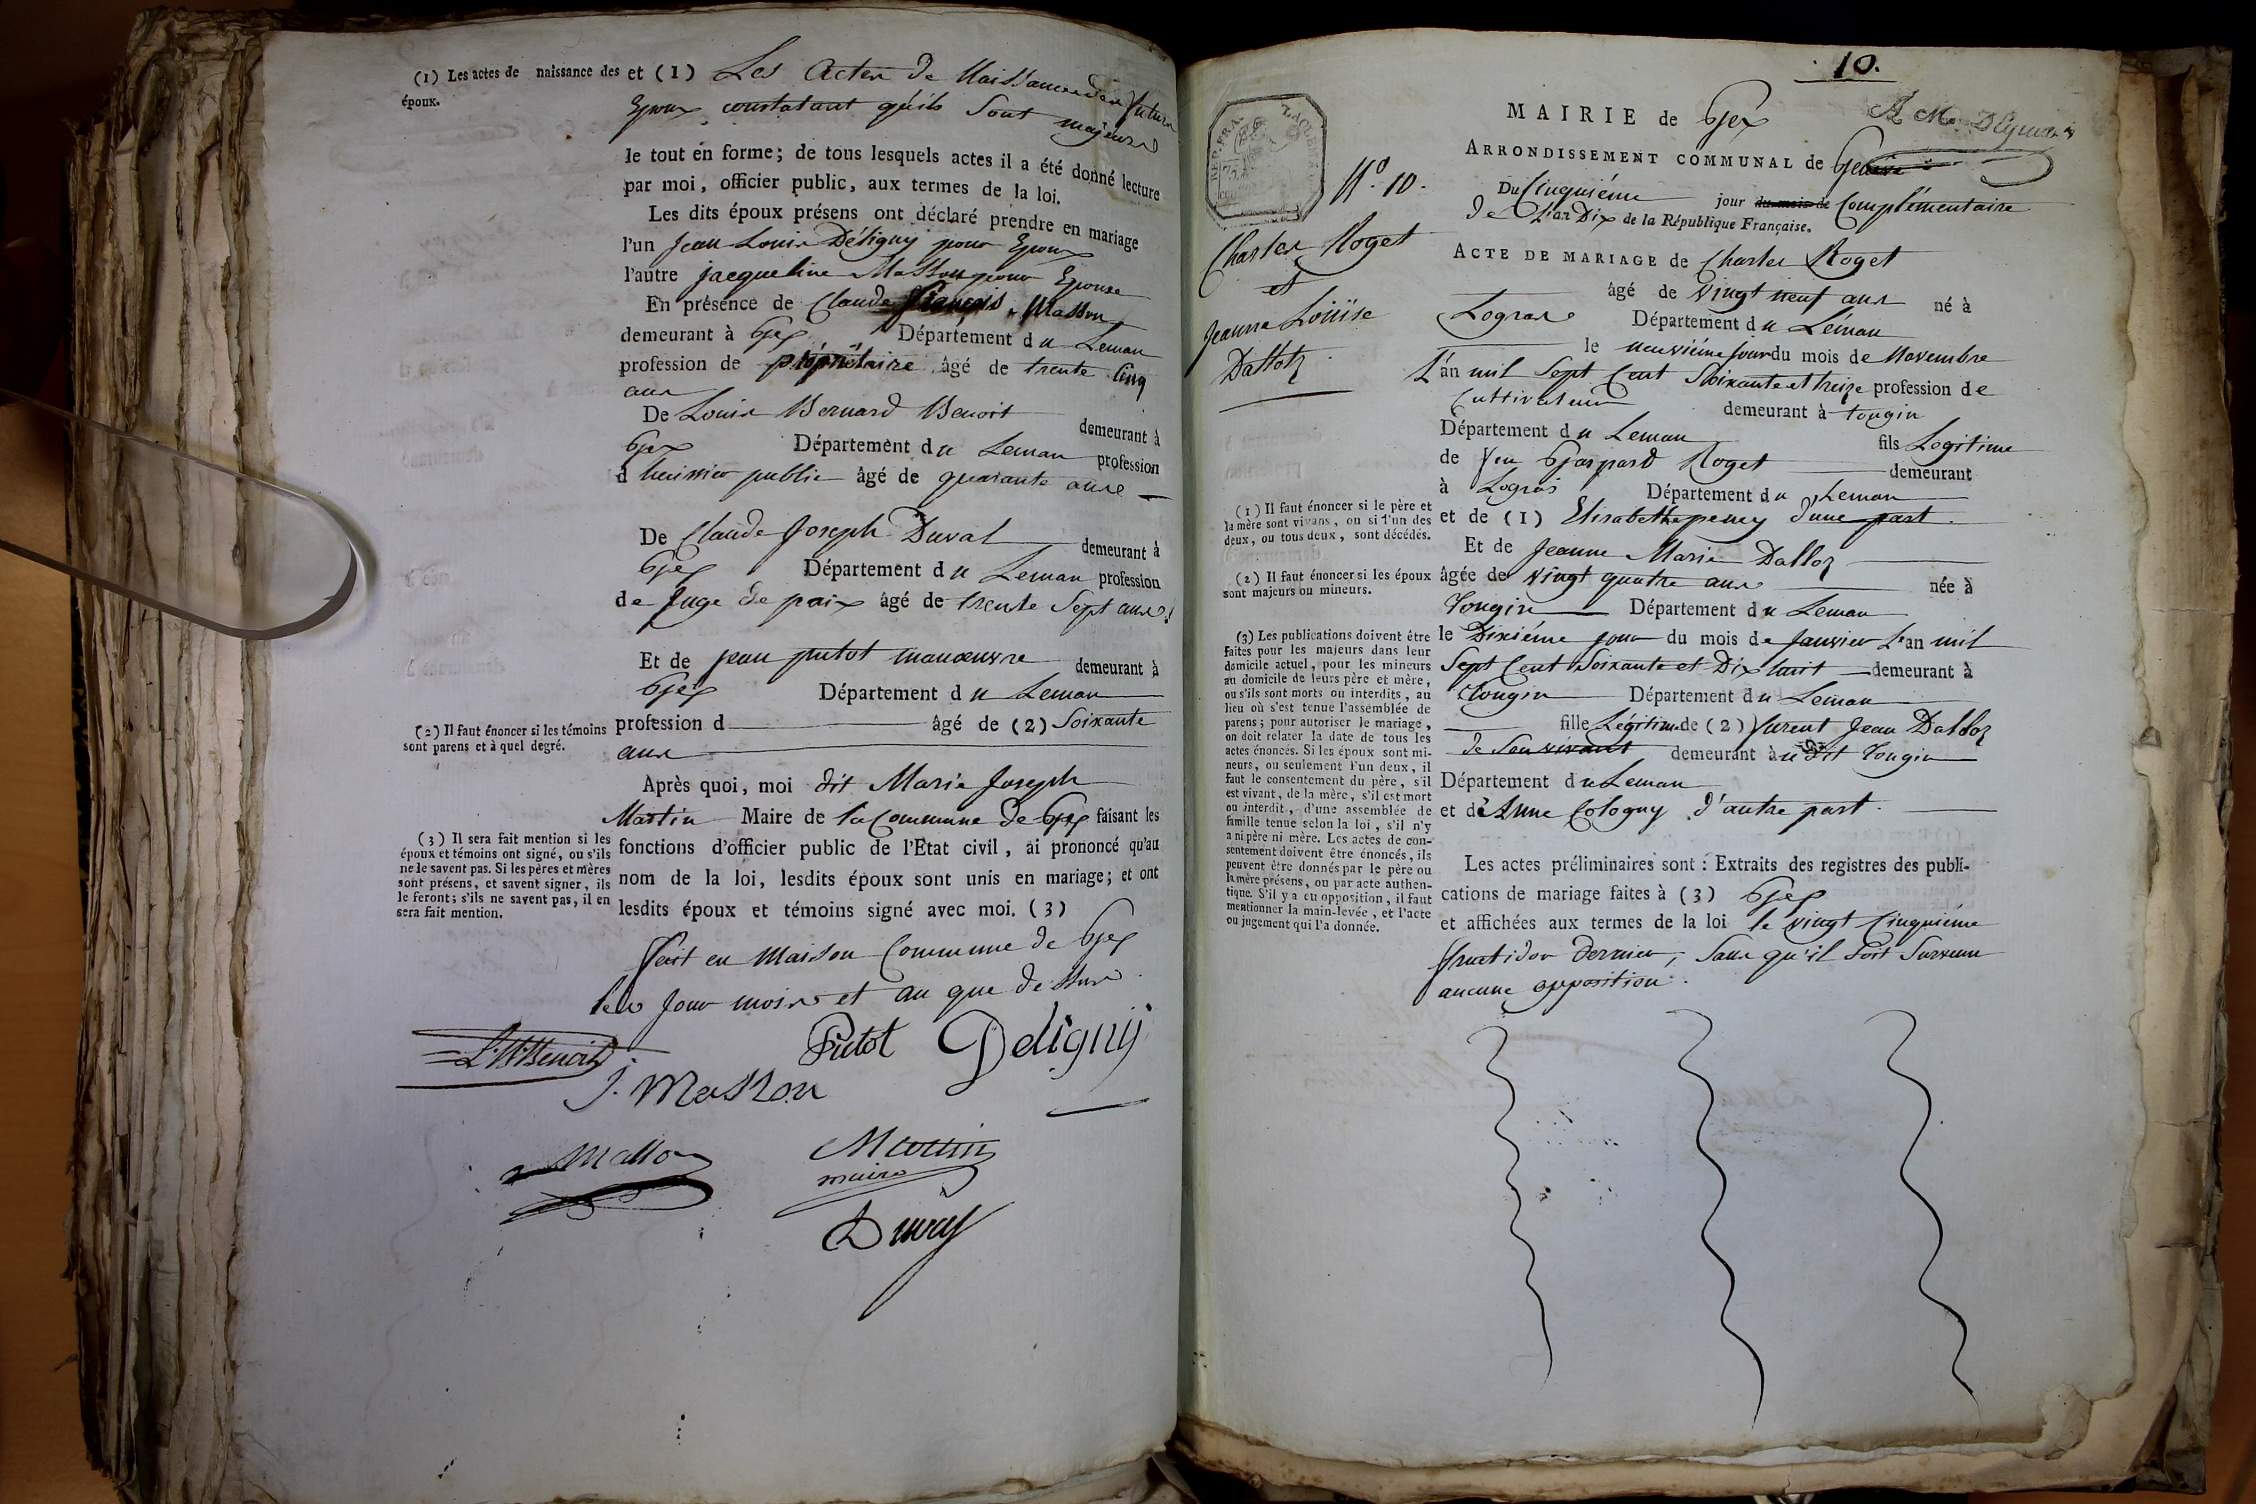 (1) Les actes de naissance des
époux.
et (1) Les Actes de Naissance des futurs
Epoux constatant qu'ils Sont majeurs
le tout en forme; de tous lesquels actes il a été donné lecture
par moi, officier public, aux termes de la loi.
Les dits époux présens ont déclaré prendre en mariage
l'un Jean Louis Déligny pour Epoux
l'autre jacqueline Masson pour Epouse
En présence de Claude François Masson
demeurant à Gex Département du Leman
profession de propriétaire âgé de trente Cinq
ans
De Louis Bernard Benoit demeurant à
Gex Département du Leman profession
d'huissier public âgé de quarante ans
De Claude Joseph Duval demeurant à
Gex Département du Leman profession
de Juge de paix âgé de trente Sept ans
Et de jean putot manoeuvre demeurant à
Gex Département du Leman
profession d âgé de (2) Soixante
ans
(2) Il faut énoncer si les témoins
sont parens et à quel degré.
Après quoi, moi dit Marie Joseph
Martin Maire de la Commune de Gex faisant les
fonctions d'officier public de l'Etat civil, ai prononcé qu'au
nom de la loi, lesdits époux sont unis en mariage; et ont
lesdits époux et témoins signé avec moi. (3)
(3) Il sera fait mention si les
époux et témoins ont signé, ou s'ils
ne le savent pas. Si les pères et mères
sont présens, et savent signer, ils
le feront; s'ils ne savent pas, il en
sera fait mention.
Fait en Maison Commune de Gex
les Jour mois et an que dessus.
L. B. Benoit Putot Deligny
J. Masson
Masson Martin
maire
Duval
10.
MAIRIE de Gex
ARRONDISSEMENT COMMUNAL de Genève
Du Cinquiéme jour du mois de Complémentaire
de L'an Dix de la République Française.
REP. FRA.
N.º 10.
Charles Roget
et
Jeanne Loüise
Dalloz
ACTE DE MARIAGE de Charles Roget
âgé de vingt neuf ans né à
Logras Département du Léman
le neuviéme jour du mois de Novembre
L'an mil Sept Cent Soixante et treize profession de
Cultivateur demeurant à tougin
Département du Leman fils Legitime
de feu Gaspard Roget demeurant
à Logras Département du Leman
et de (1) Elisabeth peney d'une part.
Et de Jeanne Marie Dalloz
âgée de vingt quatre ans née à
Tougin Département du Leman
le Dixiéme jour du mois de Janvier L'an mil
Sept Cent Soixante et Dix huit demeurant à
Tougin Département du Leman
fille Légitime de (2) furent Jean Dalloz
de Son vivant demeurant au dit Tougin
Département du Leman
et de Anne Cologny d'autre part.
Les actes préliminaires sont : Extraits des registres des publi-
cations de mariage faites à (3) Gex
et affichées aux termes de la loi le vingt Cinquiéme
fructidor dernier, Sans qu'il Soit Survenu
aucune opposition.
(1) Il faut énoncer si le père et
la mère sont vivans, ou si l'un des
deux, ou tous deux, sont décédés.
(2) Il faut énoncer si les époux
sont majeurs ou mineurs.
(3) Les publications doivent être
faites pour les majeurs dans leur
domicile actuel, pour les mineurs
au domicile de leurs père et mère,
ou s'ils sont morts ou interdits, au
lieu où s'est tenue l'assemblée de
parens; pour autoriser le mariage,
on doit relater la date de tous les
actes énoncés. Si les époux sont mi-
neurs, ou seulement l'un deux, il
faut le consentement du père, s'il
est vivant, de la mère, s'il est mort
ou interdit, d'une assemblée de
famille tenue selon la loi, s'il n'y
a ni père ni mère. Les actes de con-
sentement doivent être énoncés, ils
peuvent être donnés par le père ou
la mère présens, ou par acte authen-
tique. S'il y a eu opposition, il faut
mentionner la main-levée, et l'acte
ou jugement qui l'a donnée.